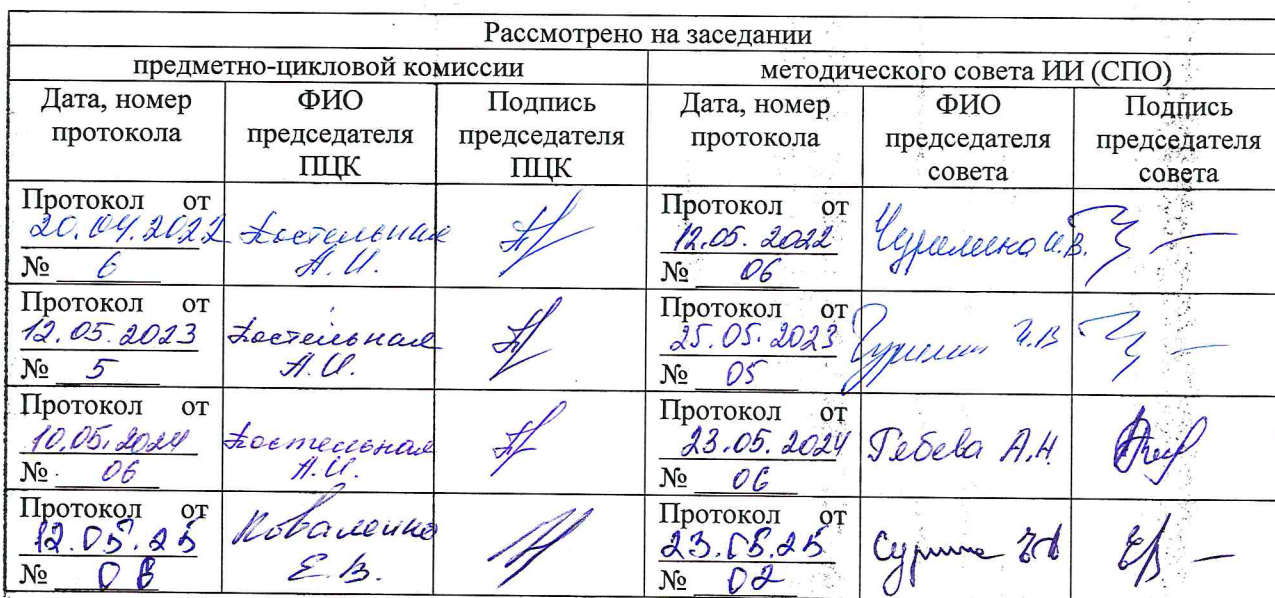 Рассмотрено на заседании
предметно-цикловой комиссии
методического совета ИИ (СПО)
Дата, номер протокола
ФИО председателя ПЦК
Подпись председателя ПЦК
Дата, номер протокола
ФИО председателя совета
Подпись председателя совета
Протокол от
20.04.2022
№ 6
Костельная
А.И.
Протокол от
12.05.2022
№ 06
И.В.
Протокол от
12.05.2023
№ 5
Костельная
А.И.
Протокол от
25.05.2023
№ 05
И.В
Протокол от
10.05.2024
№ 06
Костельная
А.И.
Протокол от
23.05.2024
№ 06
А.Н
Протокол от
12.05.25
№ 06
Коваленко
Е.В.
Протокол от
23.05.25
№ 02